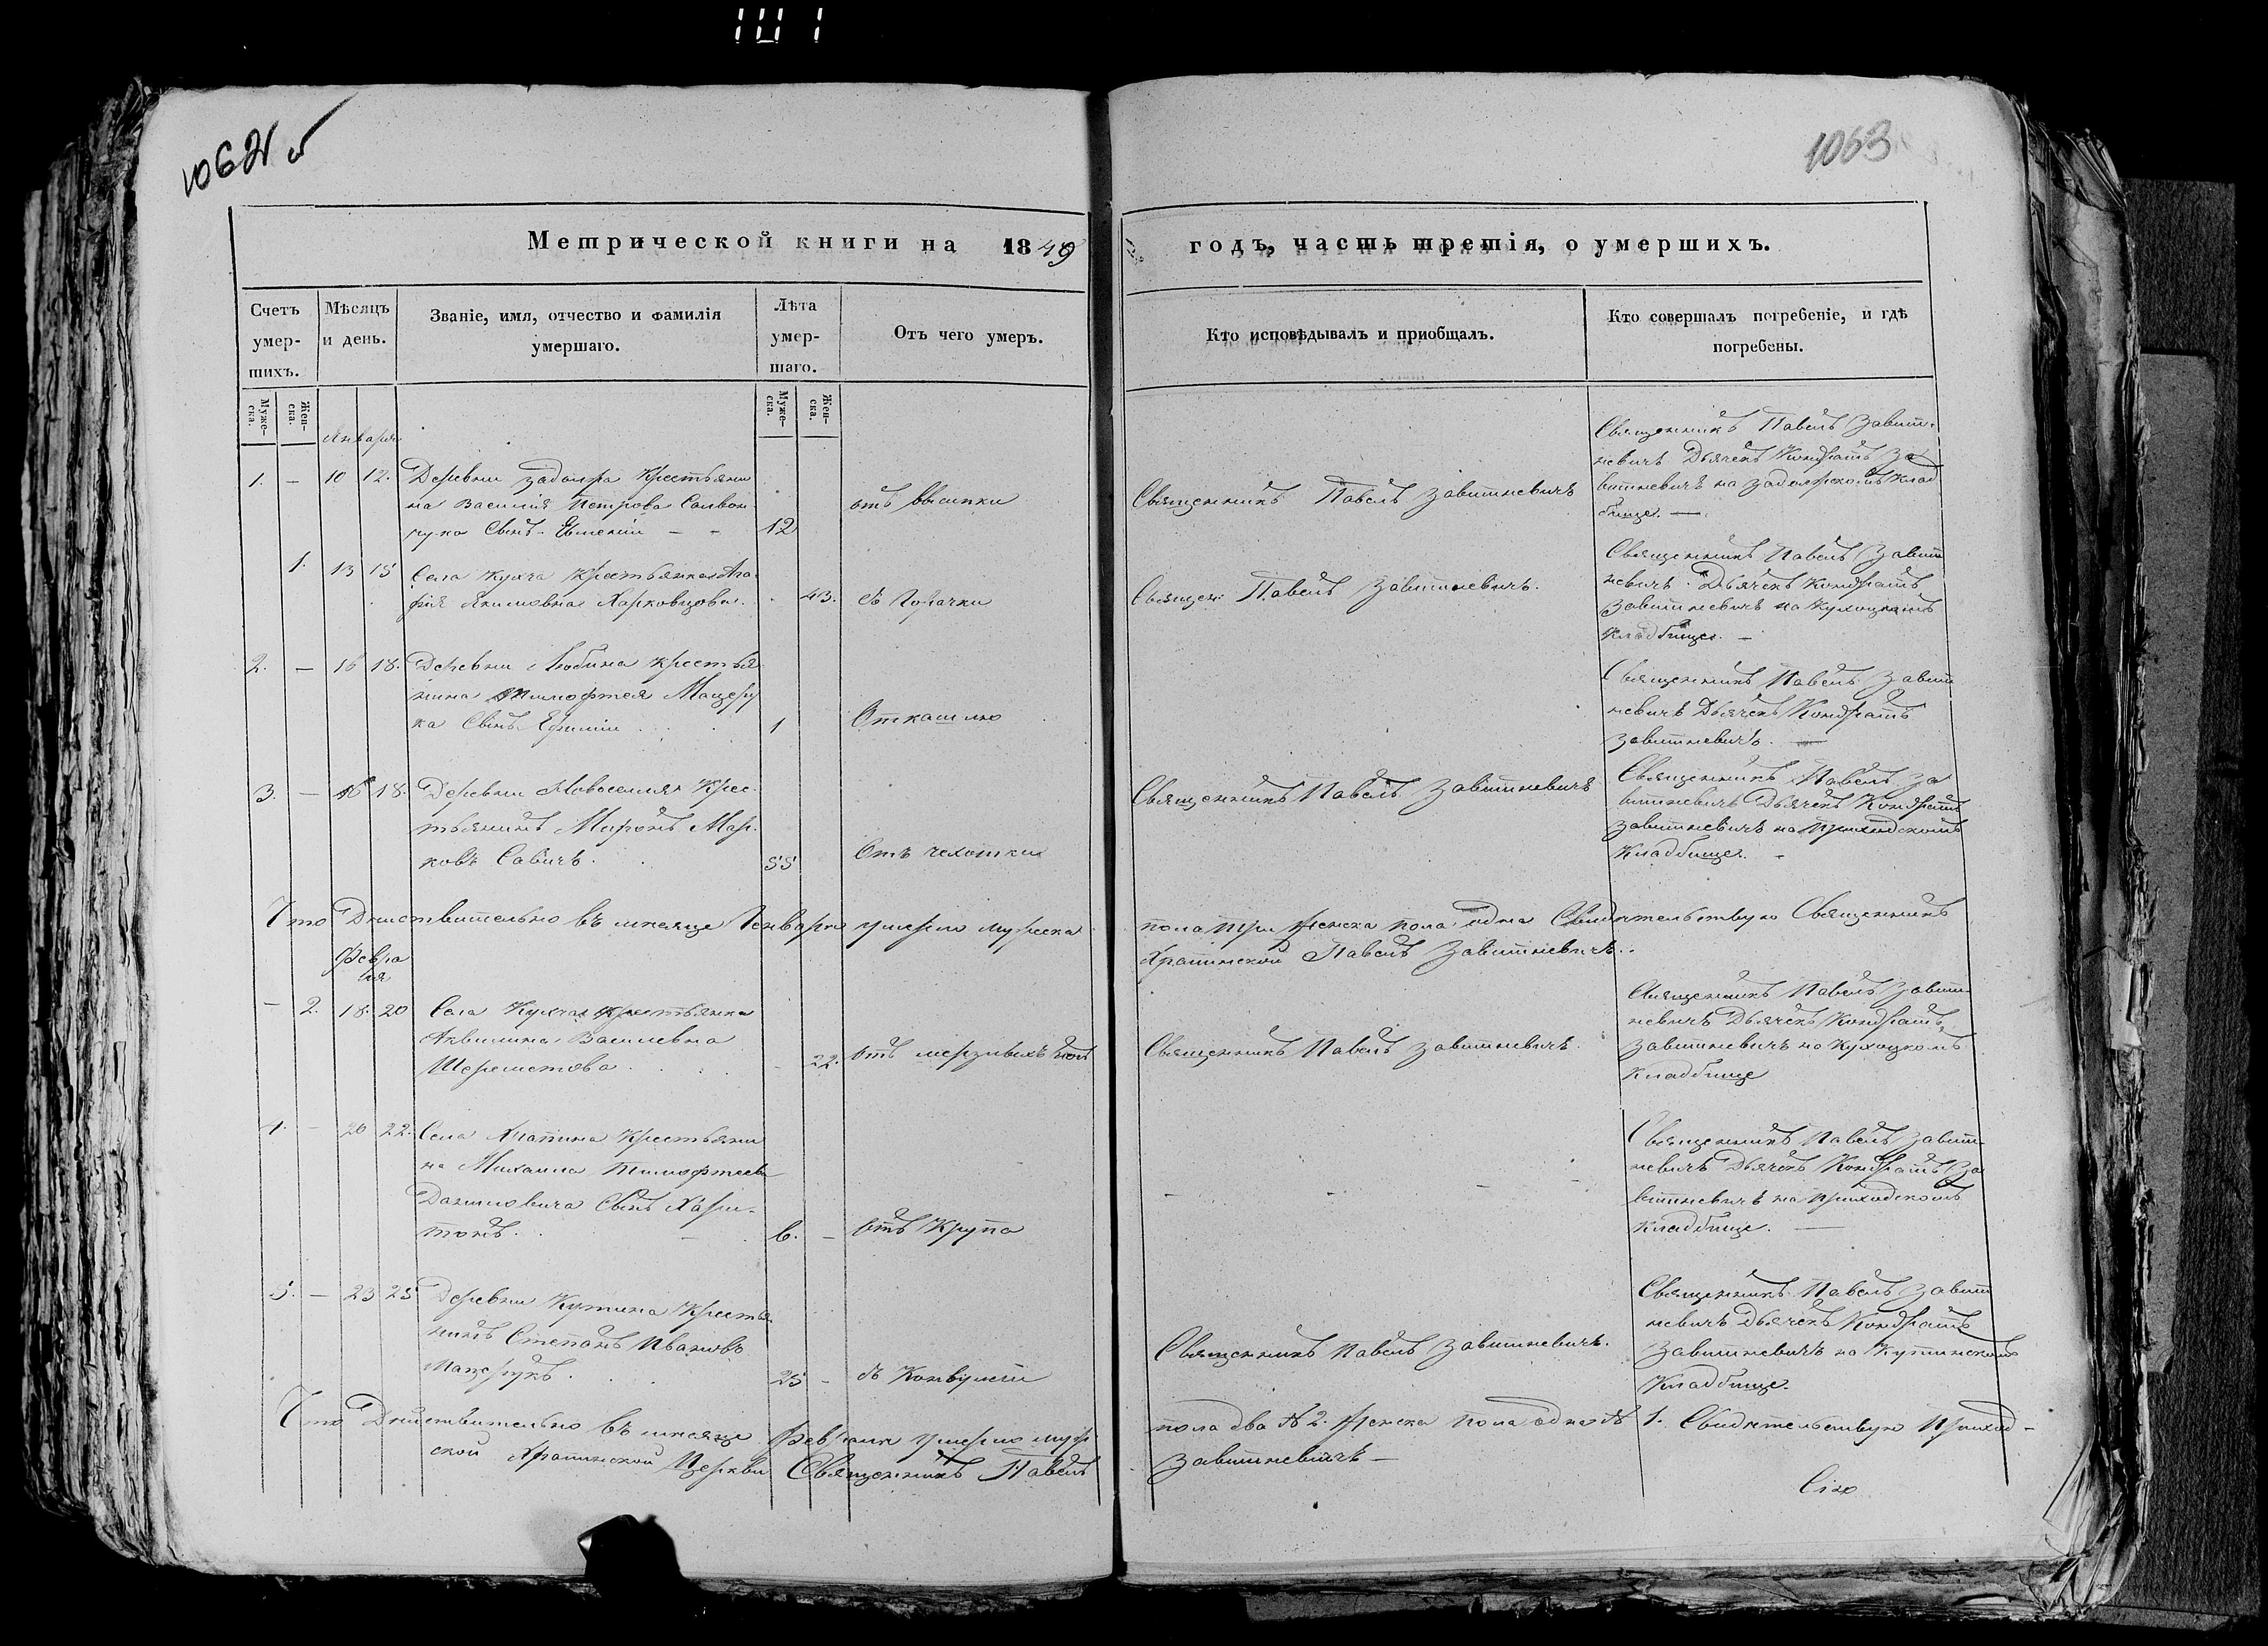 1063
Метрической книги на 1849
годъ, часть третія, о умершихъ.
Счетъ умер-шихъ.
Мѣсяцъ и день.
Званіе, имя, отчество и фамилія умершаго.
Лѣта умер-шаго.
Отъ чего умеръ.
Кто исповѣдывалъ и приобщалъ.
Кто совершалъ погребеніе, и гдѣ погребены.
Муже-ска.
Жен-ска.
Муже-ска.
Жен-ска.
Января
1. — 10 12. Деревни Крестьяни
на Василія Петрова
Сынъ
12
Священникъ Павелъ Завитневичъ
Священникъ Павелъ Завит-
невичъ Дьячекъ Кондратъ За
витневичъ на Клад
бище. —
1. 13 15 Села Кухча Крестьянка
Якимовна
43. Горячки
Священ: Павелъ Завитневичъ.
Священникъ Павелъ Завит
невичъ. Дьячекъ Кондратъ
Завитневичъ на
Кладбище. —
2. — 16 18. Деревни Крестья
нина Тимофтея Мацеру
ка Сынъ
1
Священникъ Павелъ Завит
невичъ Дьячекъ Кондратъ
Завитневичъ. —
3. — 16 18. Деревни Новоселия Крес
тьянинъ Миронъ Мар
ковъ Савичъ.
55 Отъ чехотки
Священникъ Павелъ Завитневичъ
Священникъ Павелъ За
витневичъ Дьячекъ Кондратъ
Завитневичъ на Приходскомъ
Кладбище.
Что Действительно въ месяце Генваре умерло мужеска
пола три Женска пола одна Свидетельствую Священникъ
Храпинской Павелъ Завитневичъ.
Февра
ля
— 2. 18. 20 Села Кухча Крестьянка
Аквилина Василевна
Шереметова
22. отъ
Священникъ Павелъ Завитневичъ.
Священникъ Павелъ Завит-
невичъ Дьячекъ Кондратъ
Завитневичъ на Кухоцкомъ
Кладбище
4. — 20 22. Села Храпина Крестьяни
на Михаила Тимофтеева
Даниловича Сынъ Хари-
тонъ.
6. — отъ Крупа
Священникъ Павелъ Завит-
невичъ Дьячекъ Кондратъ За
витневичъ на приходскомъ
Кладбище. —
5. — 23 25 Деревни Кутина Крестья
нинъ Степанъ Ивановъ
Мацерукъ.
25 —
Священникъ Павелъ Завитневичъ.
Священникъ Павелъ Завит
невичъ Дьячекъ Кондратъ
Завитневичъ на Кутинскомъ
Кладбище.
Что Действительно въ месяце Февраля умерло муж.
пола два № 2. Женска пола одна № 1. Свидетельствую Приход-
ской Храпинской Церкви Священникъ Павелъ
Завитневичъ —